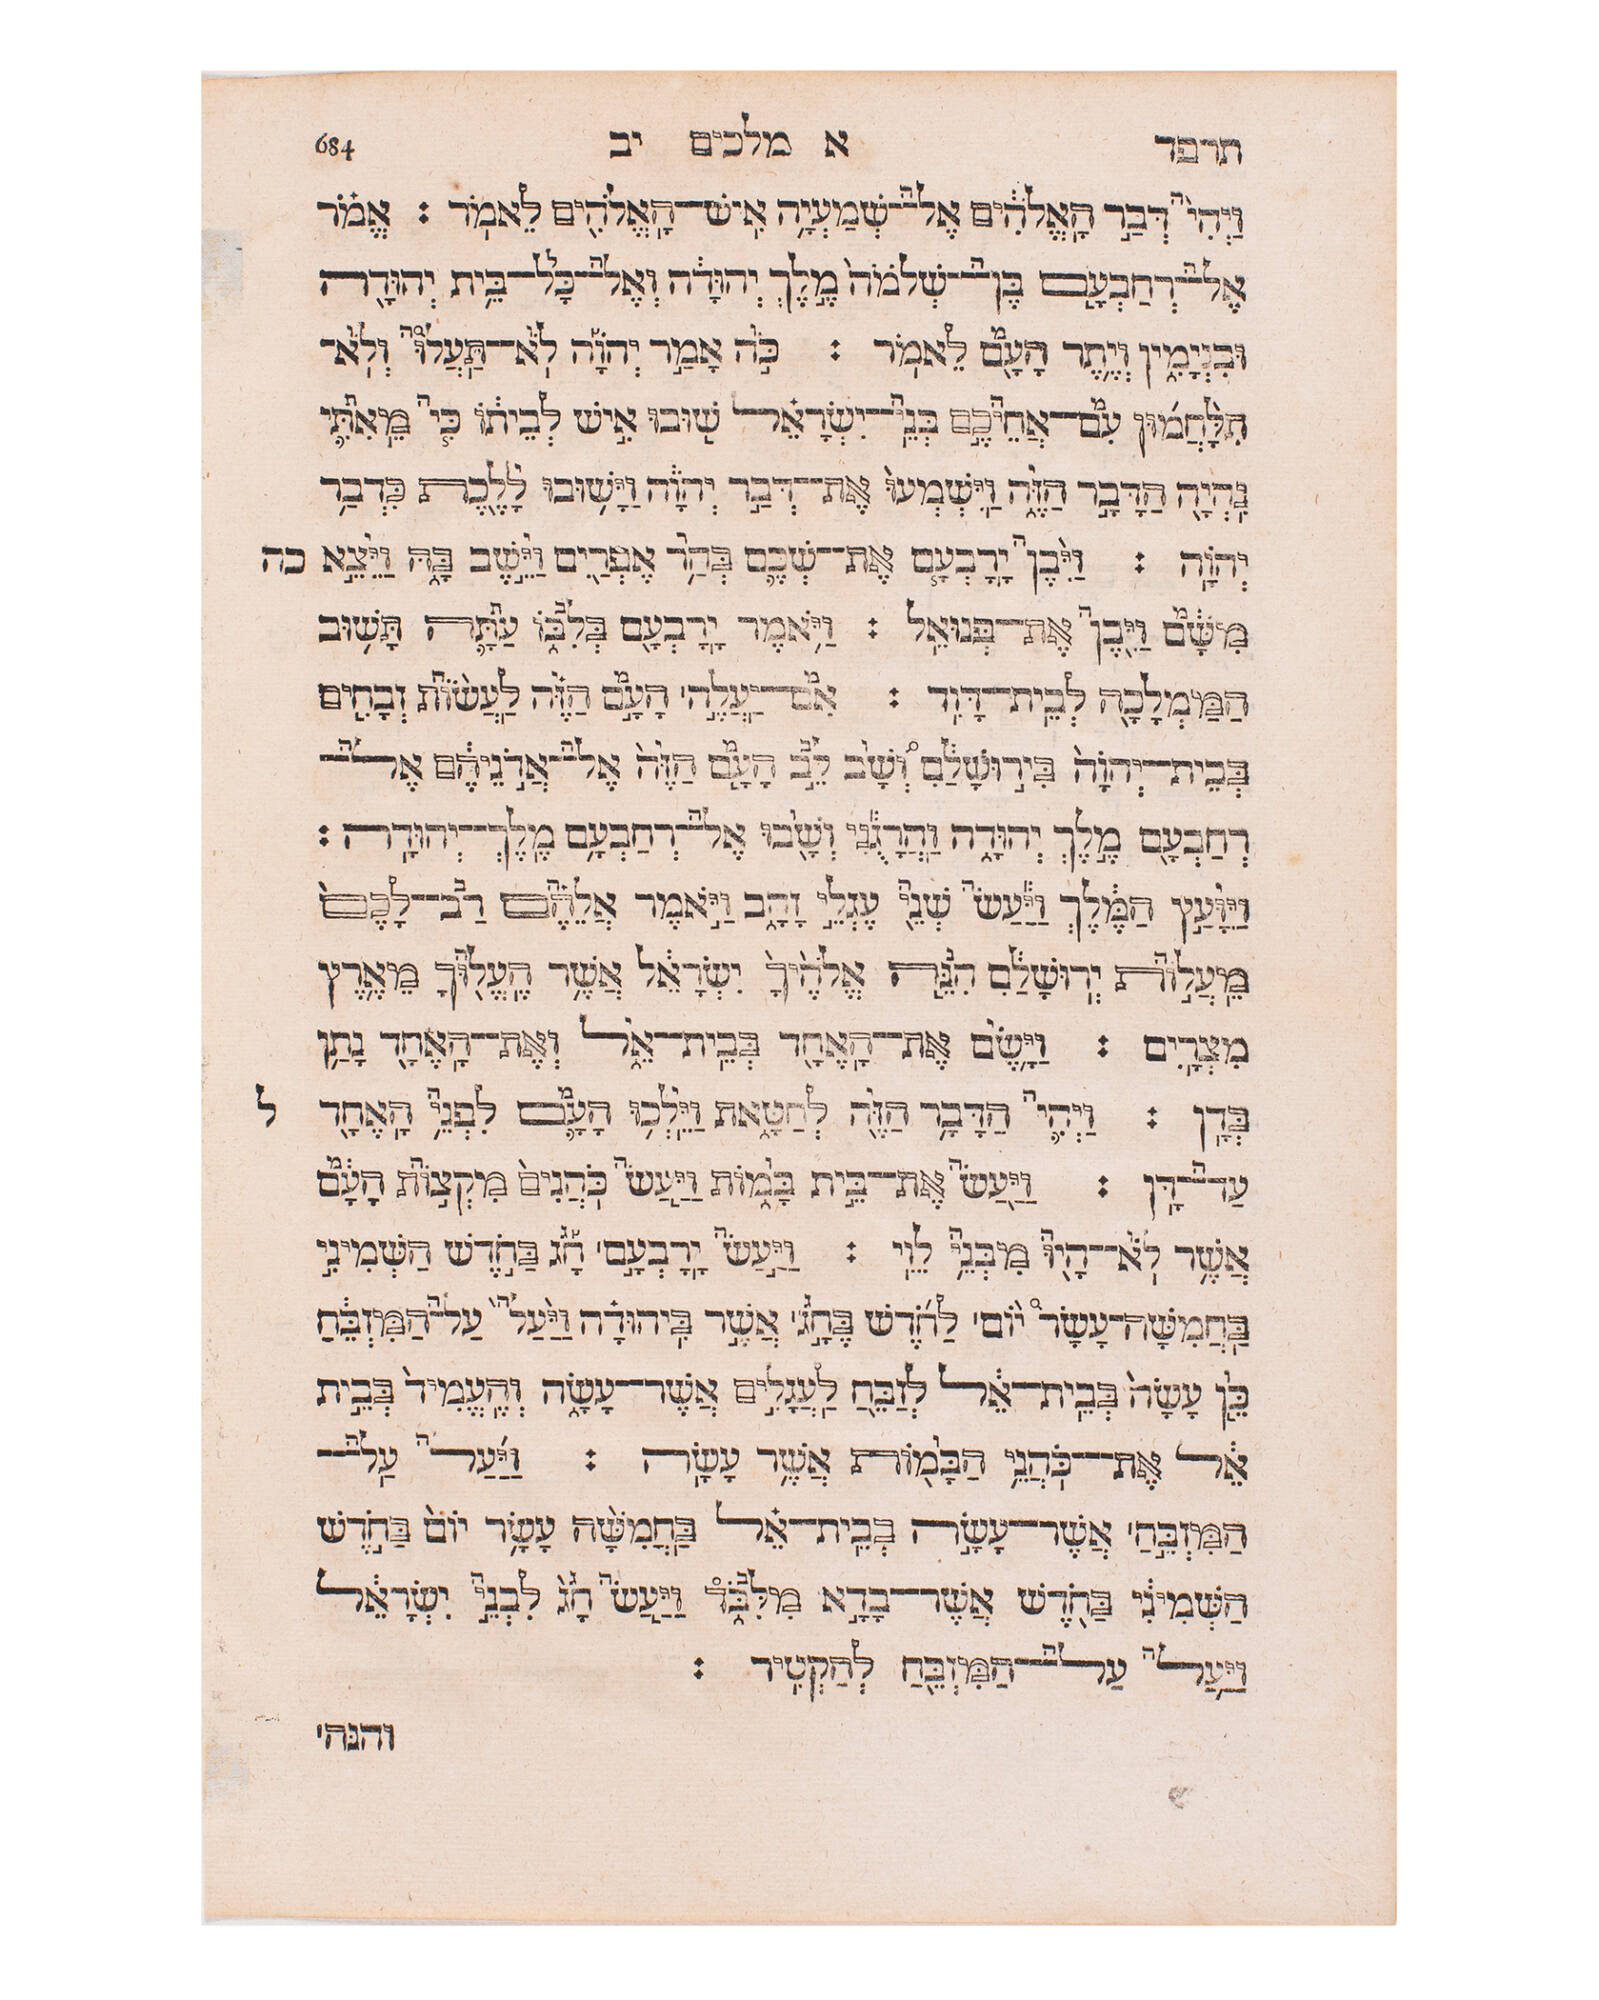 תרפד א מלכים יב 684
וַיְהִי דְּבַר הָאֱלֹהִים אֶל־שְׁמַעְיָה אִישׁ־הָאֱלֹהִים לֵאמֹר : אֱמֹר
אֶל־רְחַבְעָם בֶּן־שְׁלֹמֹה מֶלֶךְ יְהוּדָה וְאֶל־כָּל־בֵּית יְהוּדָה
וּבִנְיָמִין וְיֶתֶר הָעָם לֵאמֹר : כֹּה אָמַר יְהוָֹה לֹא־תַעֲלוּ וְלֹא־
תִלָּחֲמוּן עִם־אֲחֵיכֶם בְּנֵי־יִשְׂרָאֵל שׁוּבוּ אִישׁ לְבֵיתוֹ כִּי מֵאִתִּי
נִהְיָה הַדָּבָר הַזֶּה וַיִּשְׁמְעוּ אֶת־דְּבַר יְהוָֹה וַיָּשׁוּבוּ לָלֶכֶת כִּדְבַר
יְהוָֹה : וַיִּבֶן יָרָבְעָם אֶת־שְׁכֶם בְּהַר אֶפְרַיִם וַיֵּשֶׁב בָּהּ וַיֵּצֵא כה
מִשָּׁם וַיִּבֶן אֶת־פְּנוּאֵל : וַיֹּאמֶר יָרָבְעָם בְּלִבּוֹ עַתָּה תָּשׁוּב
הַמַּמְלָכָה לְבֵית־דָּוִד : אִם־יַעֲלֶה הָעָם הַזֶּה לַעֲשׂוֹת זְבָחִים
בְּבֵית־יְהוָֹה בִּירוּשָׁלִַם וְשָׁב לֵב הָעָם הַזֶּה אֶל־אֲדֹנֵיהֶם אֶל־
רְחַבְעָם מֶלֶךְ יְהוּדָה וַהֲרָגֻנִי וְשָׁבוּ אֶל־רְחַבְעָם מֶלֶךְ־יְהוּדָה :
וַיִּוָּעַץ הַמֶּלֶךְ וַיַּעַשׂ שְׁנֵי עֶגְלֵי זָהָב וַיֹּאמֶר אֲלֵהֶם רַב־לָכֶם
מֵעֲלוֹת יְרוּשָׁלִַם הִנֵּה אֱלֹהֶיךָ יִשְׂרָאֵל אֲשֶׁר הֶעֱלוּךָ מֵאֶרֶץ
מִצְרָיִם : וַיָּשֶׂם אֶת־הָאֶחָד בְּבֵית־אֵל וְאֶת־הָאֶחָד נָתַן
בְּדָן : וַיְהִי הַדָּבָר הַזֶּה לְחַטָּאת וַיֵּלְכוּ הָעָם לִפְנֵי הָאֶחָד ל
עַד־דָּן : וַיַּעַשׂ אֶת־בֵּית בָּמוֹת וַיַּעַשׂ כֹּהֲנִים מִקְצוֹת הָעָם
אֲשֶׁר לֹא־הָיוּ מִבְּנֵי לֵוִי : וַיַּעַשׂ יָרָבְעָם חָג בַּחֹדֶשׁ הַשְּׁמִינִי
בַּחֲמִשָּׁה־עָשָׂר יוֹם לַחֹדֶשׁ כֶּחָג אֲשֶׁר בִּיהוּדָה וַיַּעַל עַל־הַמִּזְבֵּחַ
כֵּן עָשָׂה בְּבֵית־אֵל לְזַבֵּחַ לָעֲגָלִים אֲשֶׁר־עָשָׂה וְהֶעֱמִיד בְּבֵית
אֵל אֶת־כֹּהֲנֵי הַבָּמוֹת אֲשֶׁר עָשָׂה : וַיַּעַל עַל־
הַמִּזְבֵּחַ אֲשֶׁר־עָשָׂה בְּבֵית־אֵל בַּחֲמִשָּׁה עָשָׂר יוֹם בַּחֹדֶשׁ
הַשְּׁמִינִי בַּחֹדֶשׁ אֲשֶׁר־בָּדָא מִלִּבֹּד וַיַּעַשׂ חָג לִבְנֵי יִשְׂרָאֵל
וַיַּעַל עַל־הַמִּזְבֵּחַ לְהַקְטִיר :
והנה